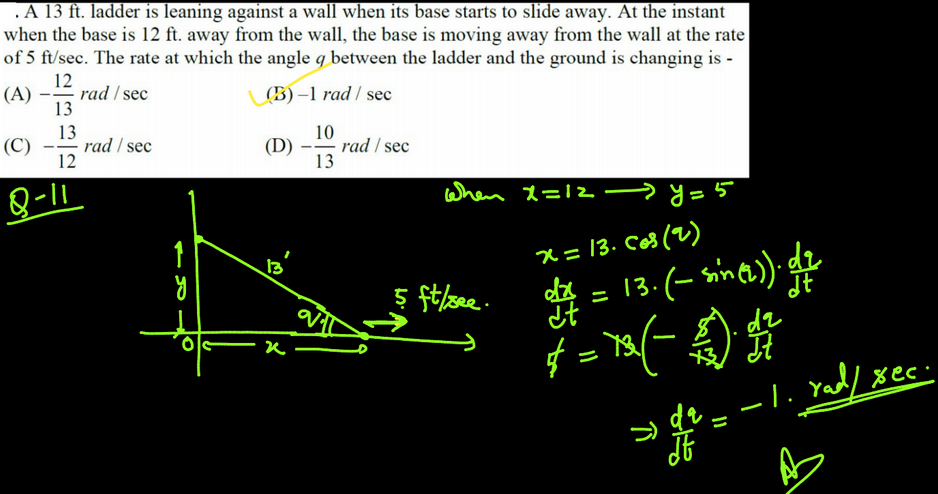 . A 13 ft. ladder is leaning against a wall when its base starts to slide away. At the instant
when the base is 12 ft. away from the wall, the base is moving away from the wall at the rate
of 5 ft/sec. The rate at which the angle q between the ladder and the ground is changing is -
(A) -12/13 rad / sec (B) -1 rad / sec
(C) -13/12 rad / sec (D) -10/13 rad / sec
Q-11
when x=12 → y=5
x = 13. cos(q)
dx/dt = 13.(-sin(q)).dq/dt
5 = 13(-5/13).dq/dt
⇒ dq/dt = -1. rad/sec.
13'
y
q
5 ft/sec.
0
x